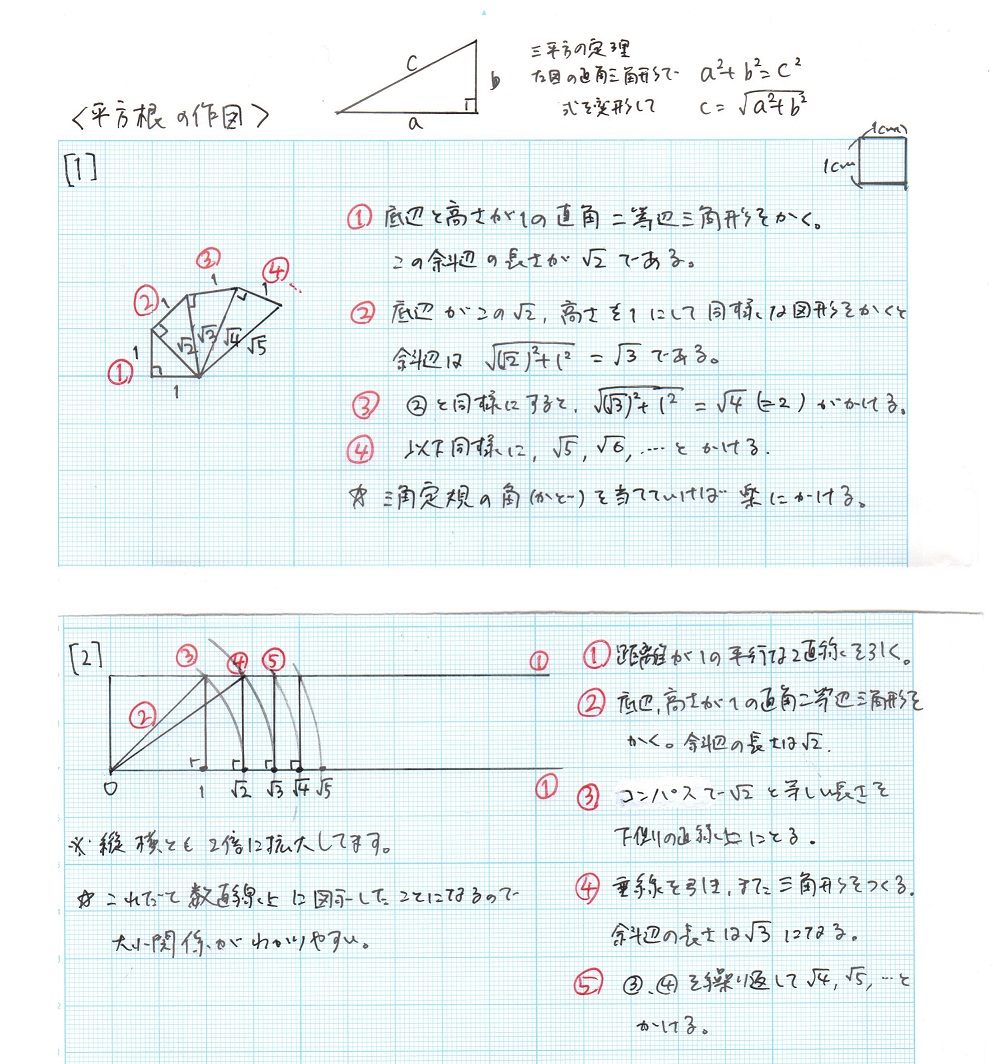 三平方の定理
左図の直角三角形で a²+b²=c²
式を変形して c=√(a²+b²)
〈平方根の作図〉
c
b
a
1cm
1cm
[1]
① 底辺と高さが1の直角二等辺三角形をかく。
この斜辺の長さが√2である。
② 底辺がこの√2, 高さを1にして同様な図形をかくと
斜辺は √((√2)²+1²) = √3である。
③ ②と同様にすると, √((√3)²+1²) = √4 (=2) がかける。
④ 以下同様に, √5, √6, ‥‥とかける.
☆ 三角定規の角(かど)を当てていけば楽にかける。
③
④
②
①
1
1
1
1
1
√2
√3
√4
√5
[2]
③ ④ ⑤ ①
②
0 1 √2 √3 √4 √5 ①
※ 縦横とも2倍に拡大してます。
☆ これだと数直線上に図示したことになるので
大小関係がわかりやすい。
① 距離が1の平行な2直線を引く。
② 底辺, 高さが1の直角二等辺三角形を
かく。斜辺の長さは√2.
③ コンパスで√2と等しい長さを
下側の直線上にとる.
④ 垂線を引き, また三角形をつくる.
斜辺の長さは√3になる。
⑤ ③、④を繰り返して√4, √5, ‥と
かける。